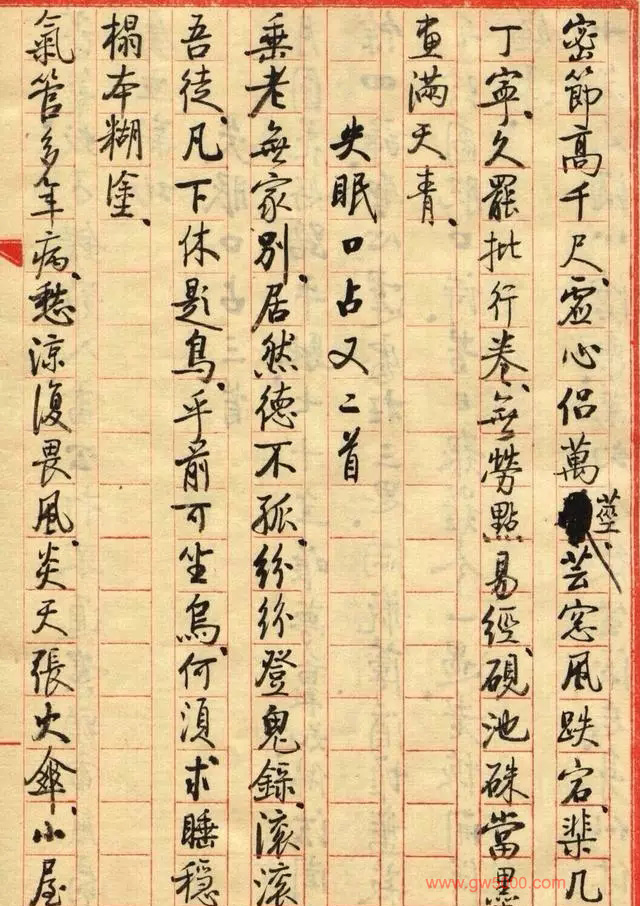 密節高千尺、虛心侶萬莖、芸窓風跌宕、棐几
丁寧、久罷批行卷、無勞點易經、硯池硃當墨
畫滿天青、
失眠口占又二首
垂老無家別、居然德不孤、紛紛登鬼錄、滾滾
吾徒、凡下休題鳥、乎前可坐烏、何須求睡穩
榻本糊塗、
氣管多年病、愁涼復畏風、炎天張火傘、小屋
www.gw5100.com